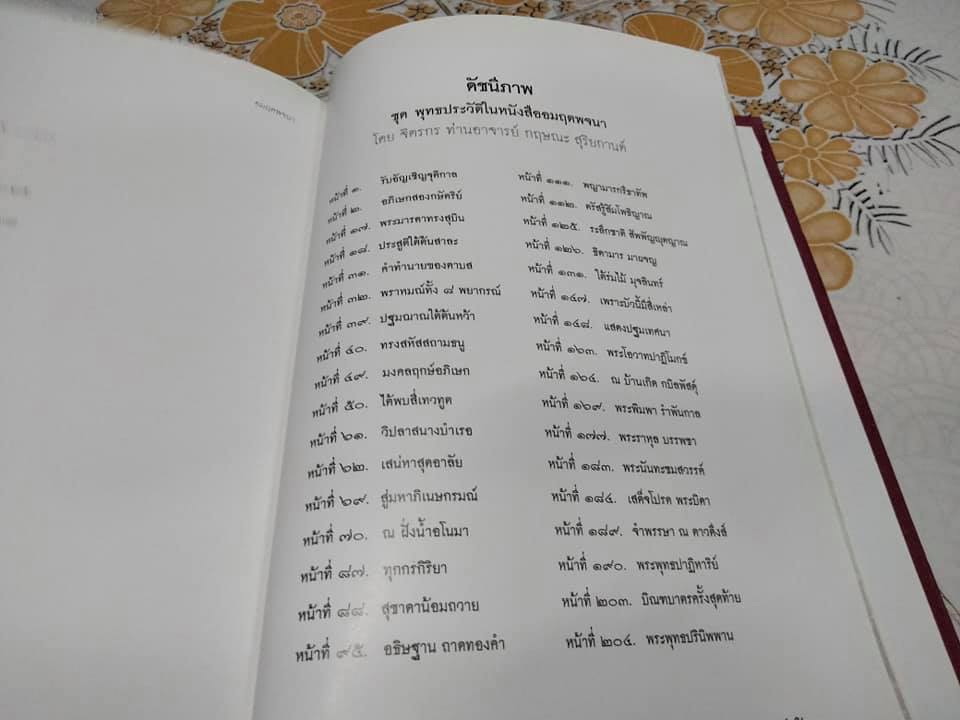 ดัชนีภาพ
ชุด พุทธประวัติในหนังสืออมฤตพจนา
โดย จิตรกร ท่านอาจารย์ กฤษณะ สุริยกานต์
หน้าที่ ๑. รับอัญเชิญจุติกาล
หน้าที่ ๒. อภิเษกสองกษัตริย์
หน้าที่ ๑๗. พระมารดาทรงสุบิน
หน้าที่ ๑๘. ประสูติใต้ต้นสาละ
หน้าที่ ๓๑. คำทำนายของดาบส
หน้าที่ ๓๒. พราหมณ์ทั้ง ๘ พยากรณ์
หน้าที่ ๓๙. ปฐมฌาณใต้ต้นหว้า
หน้าที่ ๔๐. ทรงสหัสสถามธนู
หน้าที่ ๔๙. มงคลฤกษ์อภิเษก
หน้าที่ ๕๐. ได้พบสี่เทวทูต
หน้าที่ ๖๑. วิปลาสนางบำเรอ
หน้าที่ ๖๒. เสน่หาสุดอาลัย
หน้าที่ ๖๙. สู่มหาภิเนษกรมณ์
หน้าที่ ๗๐. ณ ฝั่งน้ำอโนมา
หน้าที่ ๘๗. ทุกกรกิริยา
หน้าที่ ๘๘. สุชาดาน้อมถวาย
หน้าที่ ๙๕. อธิษฐาน ถาดทองคำ
หน้าที่ ๑๑๑. พญามารกรีธาทัพ
หน้าที่ ๑๑๒. ตรัสรู้สัมโพธิญาณ
หน้าที่ ๑๒๕. ระลึกชาติ สัพพัญญุตญาณ
หน้าที่ ๑๒๖. ธิดามาร มาผจญ
หน้าที่ ๑๓๑. ใต้ร่มไม้ มุจลินทร์
หน้าที่ ๑๔๗. เพราะบัวนี้มีสี่เหล่า
หน้าที่ ๑๔๘. แสดงปฐมเทศนา
หน้าที่ ๑๖๓. พระโอวาทปาฏิโมกข์
หน้าที่ ๑๖๔. ณ บ้านเกิด กบิลพัสดุ์
หน้าที่ ๑๖๙. พระพิมพา รำพันกาล
หน้าที่ ๑๗๗. พระราหุล บรรพชา
หน้าที่ ๑๘๓. พระนันทะชมสวรรค์
หน้าที่ ๑๘๔. เสด็จโปรด พระบิดา
หน้าที่ ๑๘๙. จำพรรษา ณ ดาวดึงส์
หน้าที่ ๑๙๐. พระพุทธปาฏิหาริย์
หน้าที่ ๒๐๓. บิณฑบาตรครั้งสุดท้าย
หน้าที่ ๒๐๔. พระพุทธปรินิพพาน